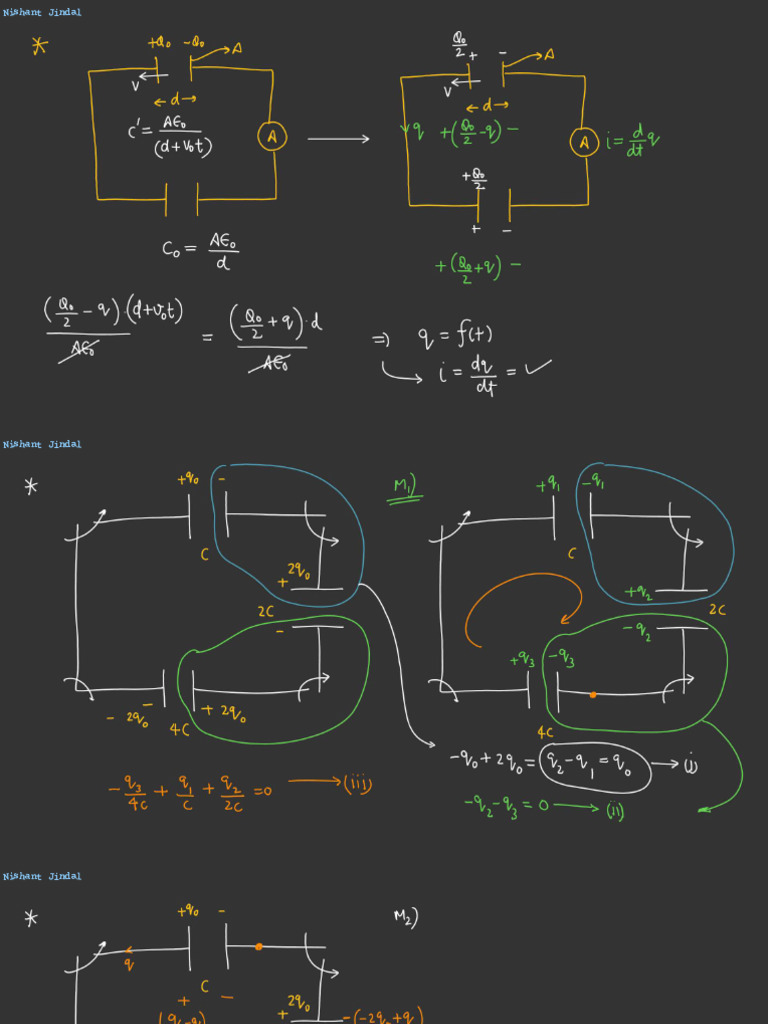 Nishant Jindal
* +Q₀ -Q₀ A
v
← d →
C' = Aε₀/(d+v₀t)
A
C₀ = Aε₀/d
Q₀/2 + - A
v
← d →
q +(Q₀/2 - q) -
A i = d/dt q
+Q₀/2
+ -
+(Q₀/2 + q) -
(Q₀/2 - q)·(d+v₀t)/Aε₀ = (Q₀/2 + q)·d/Aε₀ ⇒ q = f(t)
→ i = dq/dt = ✓
Nishant Jindal
* +q₀ -
C
2q₀
+
2C
-
- 2q₀ - + 2q₀
4C
M₁)
+q₁ -q₁
C
+q₂
2C
-q₂
+q₃ -q₃
4C
-q₀ + 2q₀ = q₂ - q₁ = q₀ → (i)
-q₂ - q₃ = 0 → (ii)
-q₃/4C + q₁/C + q₂/2C = 0 → (iii)
Nishant Jindal
* +q₀ - M₂)
q
C
+ -
2q₀
+ -(-2q₀+q)